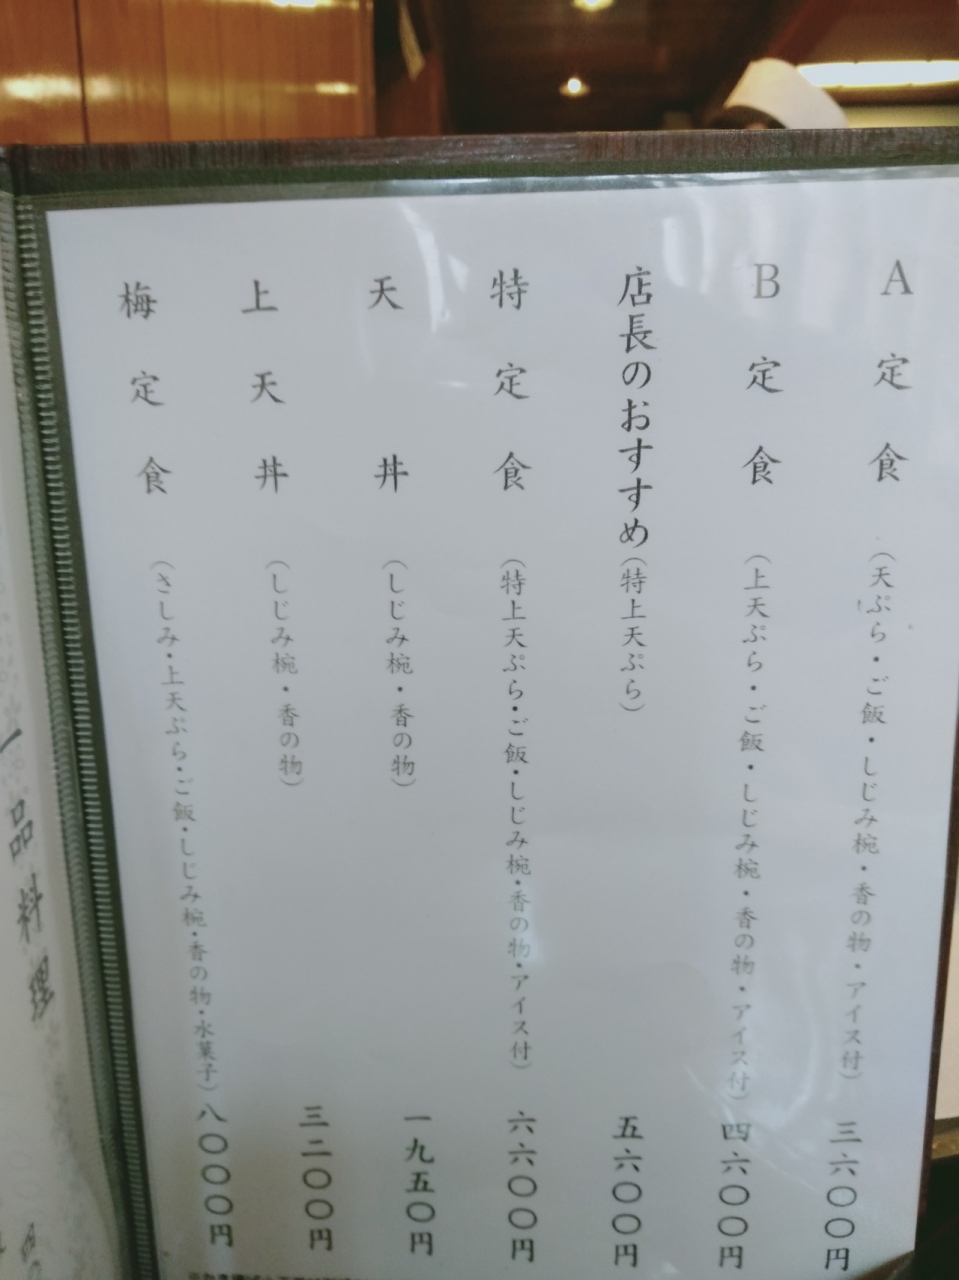 A定食（天ぷら・ご飯・しじみ椀・香の物・アイス付）三六〇〇円
B定食（上天ぷら・ご飯・しじみ椀・香の物・アイス付）四六〇〇円
店長のおすすめ（特上天ぷら）五六〇〇円
特定食（特上天ぷら・ご飯・しじみ椀・香の物・アイス付）六六〇〇円
天丼（しじみ椀・香の物）一九五〇円
上天丼（しじみ椀・香の物）三二〇〇円
梅定食（さしみ・上天ぷら・ご飯・しじみ椀・香の物・水菓子）八〇〇〇円
一品料理